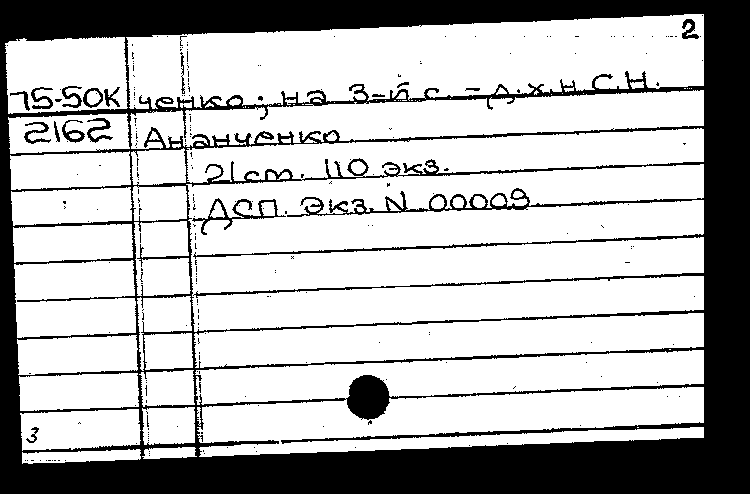 2
75-50К ченко; на 3-й с. - д.х.н С.Н.
2162 Ананченко
21 ст. 110 экз.
ДСП. Экз. N 00009
3